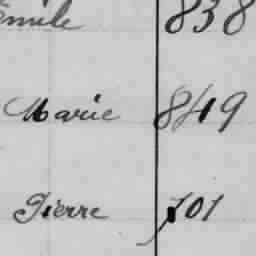 Emile 838
Marie 849
Pierre 101